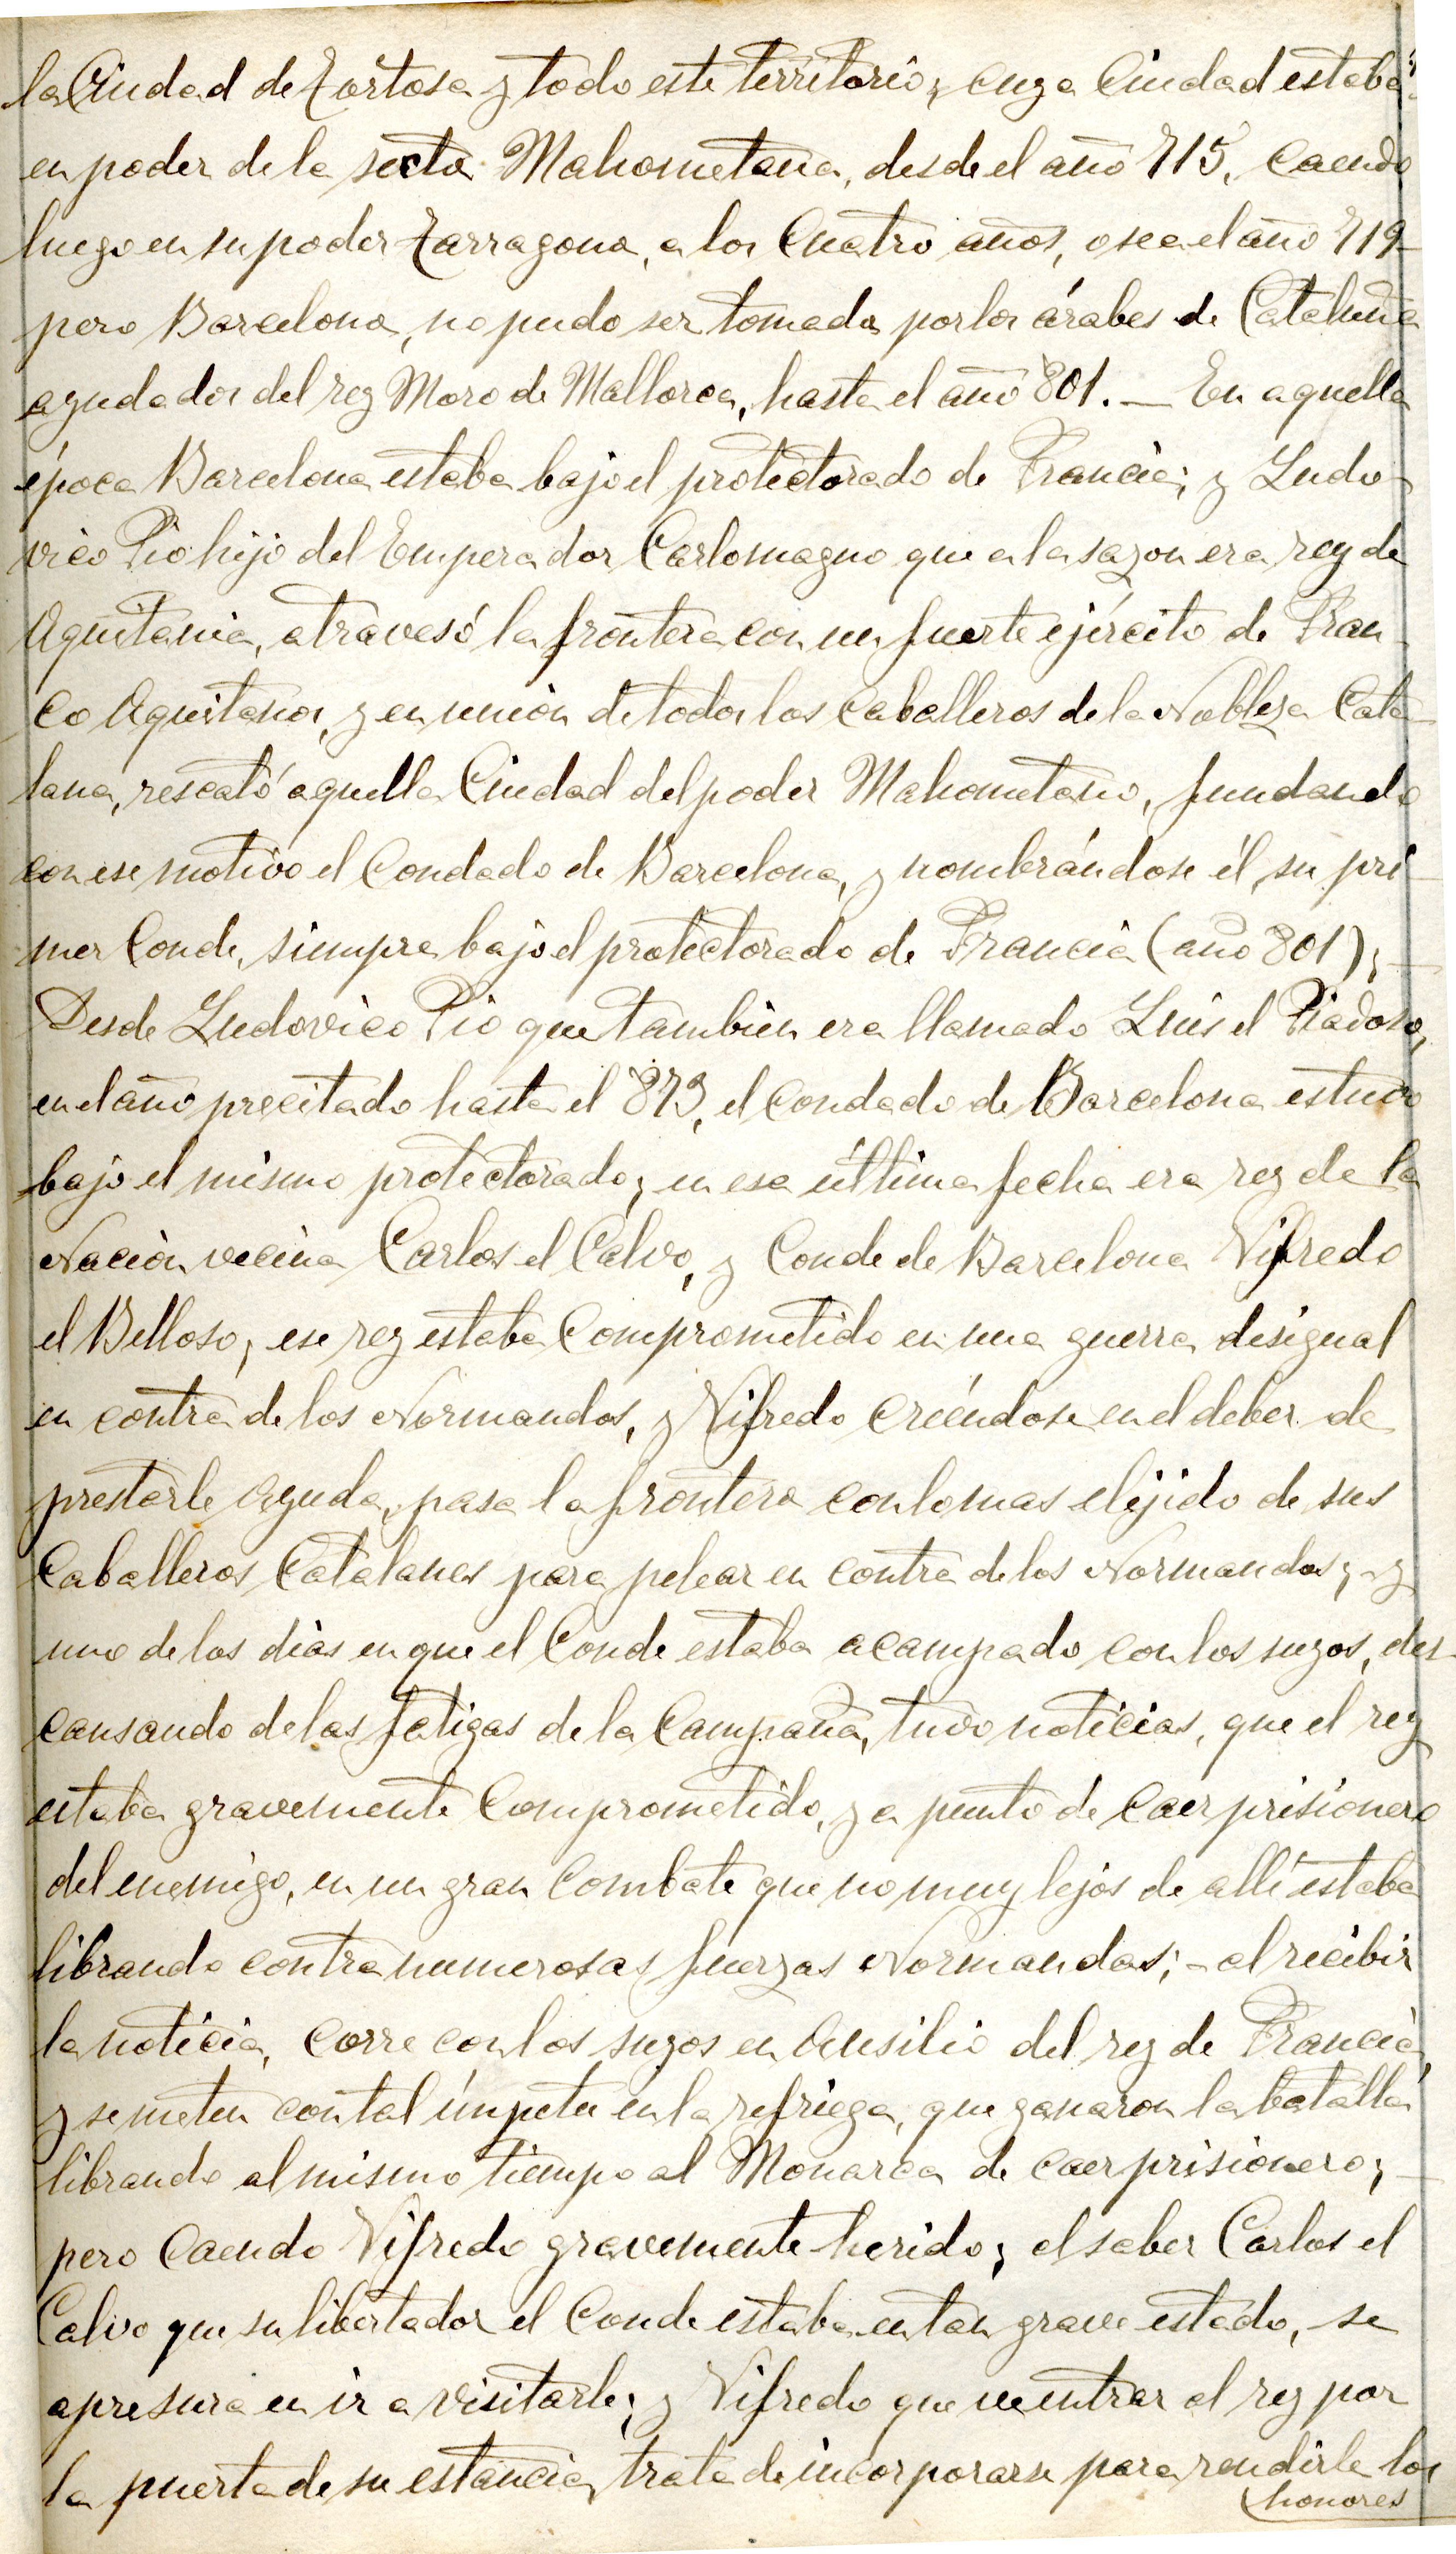 la Ciudad de Tortosa y todo este territorio; cuya Ciudad estaba
en poder de la secta Mahometana, desde el año 715, caendo
luego en su poder Tarragona, a los Cuatro años, o sea el año 719
pero Barcelona, no pudo ser tomada por los árabes de Cataluña
ayudados del rey Moro de Mallorca, hasta el año 801. — En aquella
época Barcelona estaba bajo el protectorado de Francia; y Ludo-
vico Pio hijo del Emperador Carlomagno que a la sazon era rey de
Aquitania, atravesó la frontera con un fuerte ejército de Fran-
co Aquitanos, y en unión de todos los caballeros de la Nobleza Cata-
lana, rescató aquella Ciudad del poder Mahometano, fundando
con ese motivo el Condado de Barcelona, y nombrándose él, su pri-
mer Conde, siempre bajo el protectorado de Francia (año 801); —
Desde Ludovico Pio que tambien era llamado Luis el Piadoso,
en el año precitado hasta el 873, el Condado de Barcelona estuvo
bajo el mismo protectorado; en esa última fecha era rey de la
Nación vecina Carlos el Calvo, y Conde de Barcelona Vifredo
el Belloso; ese rey estaba Comprometido en una guerra desigual
en contra de los Normandos, y Vifredo creéndose en el deber de
prestarle ayuda, pasa la frontera con lo mas elejido de sus
Caballeros Catalanes para pelear en contra de los Normandos; - y
uno de los dias en que el Conde estaba acampado con los suyos, des-
cansando de las fatigas de la Campaña, tuvo noticias, que el rey
estaba gravemente Comprometido, y a punto de Caer prisionero
del enemigo, en un gran Combate que no muy lejos de allí estaba
librando contra numerosas fuerzas Normandas; - al recibir
la noticia, Corre con los suyos en Ausilio del rey de Francia,
y se meten con tal ímpetu en la refriega, que ganaron la batalla
librando al mismo tiempo al Monarca de caer prisionero; —
pero Caendo Vifredo gravemente herido; al saber Carlos el
Calvo que su libertador el Conde estaba en tan grave estado, se
apresura en ir a visitarle; y Vifredo que ve entrar al rey por
la puerta de su estancia, trata de incorporarse para rendirle los
honores